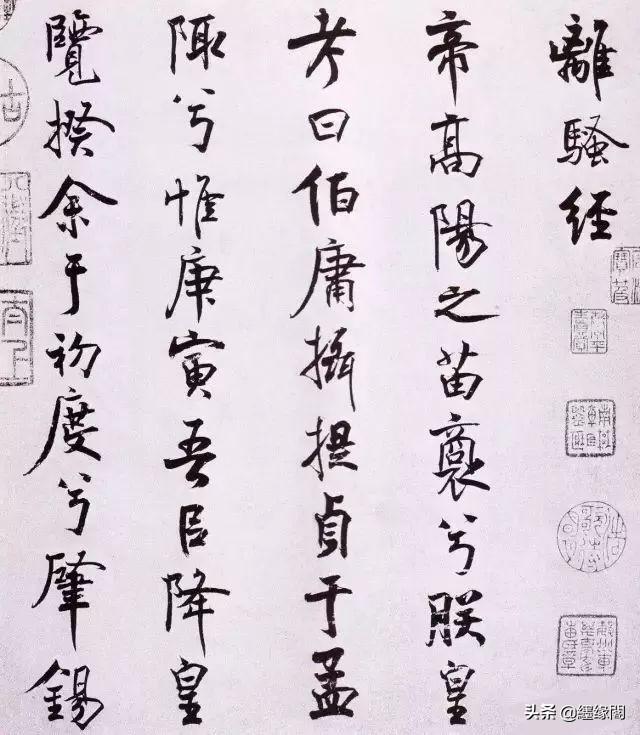 離騷經
帝高陽之苗裔兮朕皇
考曰伯庸攝提貞于孟
陬兮惟庚寅吾㠯降皇
覽揆余于初度兮肇錫
头条